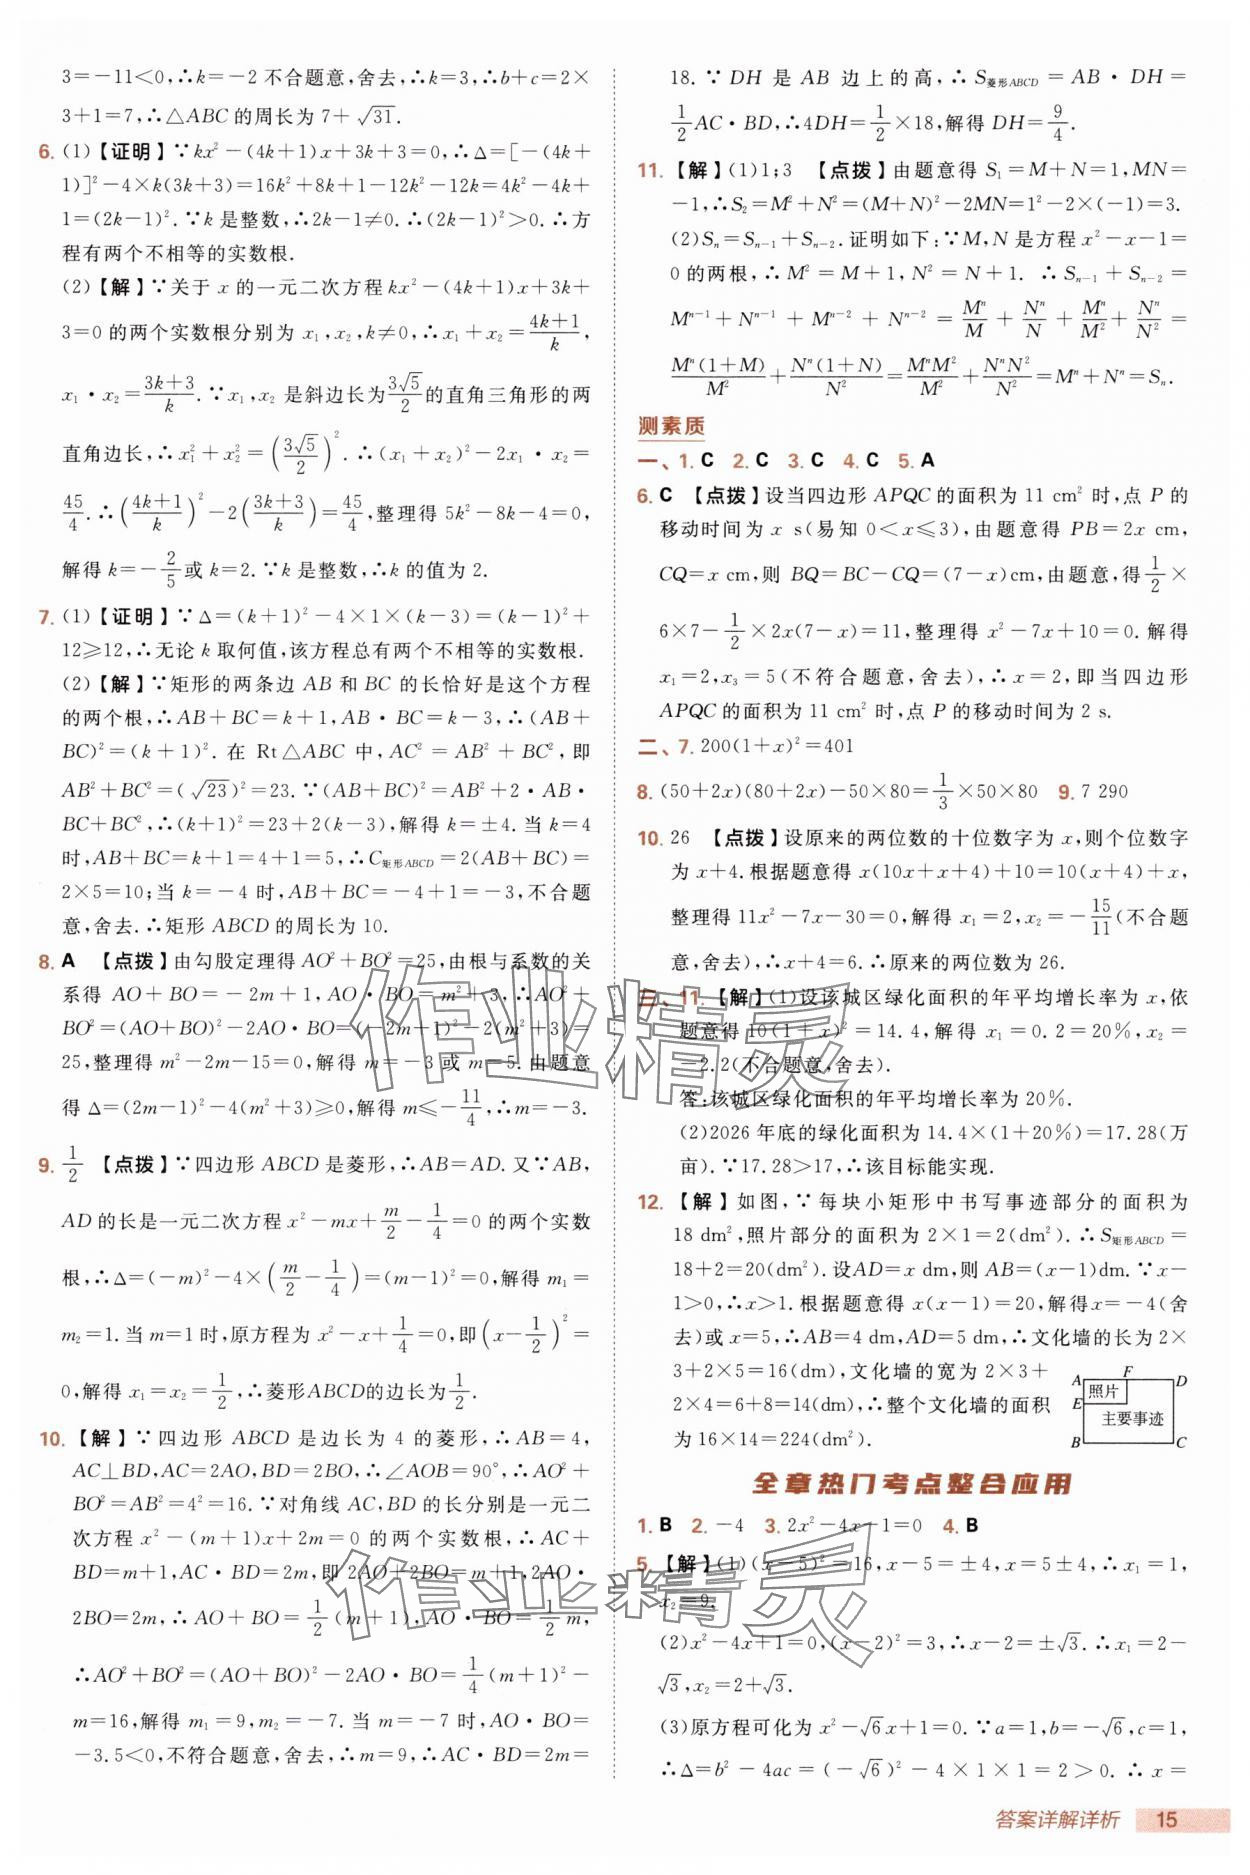 3=-11<0,∴k=-2不合题意,舍去,∴k=3,∴b+c=2×
3+1=7,∴△ABC的周长为7+√31.
6. (1)【证明】∵kx²-(4k+1)x+3k+3=0,∴Δ=[-(4k+
1)]²-4×k(3k+3)=16k²+8k+1-12k²-12k=4k²-4k+
1=(2k-1)².∵k是整数,∴2k-1≠0.∴(2k-1)²>0.∴方
程有两个不相等的实数根.
(2)【解】∵关于x的一元二次方程kx²-(4k+1)x+3k+
3=0的两个实数根分别为x₁,x₂,k≠0,∴x₁+x₂=(4k+1)/k,
x₁·x₂=(3k+3)/k.∵x₁,x₂是斜边长为3√5/2的直角三角形的两
直角边长,∴x₁²+x₂²=(3√5/2)².∴(x₁+x₂)²-2x₁·x₂=
45/4.∴((4k+1)/k)²-2((3k+3)/k)=45/4,整理得5k²-8k-4=0,
解得k=-2/5或k=2.∵k是整数,∴k的值为2.
7. (1)【证明】∵Δ=(k+1)²-4×1×(k-3)=(k-1)²+
12≥12,∴无论k取何值,该方程总有两个不相等的实数根.
(2)【解】∵矩形的两条边AB和BC的长恰好是这个方程
的两个根,∴AB+BC=k+1,AB·BC=k-3,∴(AB+
BC)²=(k+1)².在Rt△ABC中,AC²=AB²+BC²,即
AB²+BC²=(√23)²=23.∵(AB+BC)²=AB²+2·AB·
BC+BC²,∴(k+1)²=23+2(k-3),解得k=±4.当k=4
时,AB+BC=k+1=4+1=5,∴C矩形ABCD=2(AB+BC)=
2×5=10;当k=-4时,AB+BC=-4+1=-3,不合题
意,舍去.∴矩形ABCD的周长为10.
8. A 【点拨】由勾股定理得AO²+BO²=25,由根与系数的关
系得AO+BO=-2m+1,AO·BO=m²+3,∴AO²+
BO²=(AO+BO)²-2AO·BO=(-2m+1)²-2(m²+3)=
25,整理得m²-2m-15=0,解得m=-3或m=5.由题意
得Δ=(2m-1)²-4(m²+3)≥0,解得m≤-11/4,∴m=-3.
9. 1/2 【点拨】∵四边形ABCD是菱形,∴AB=AD.又∵AB,
AD的长是一元二次方程x²-mx+m/2-1/4=0的两个实数
根,∴Δ=(-m)²-4×(m/2-1/4)=(m-1)²=0,解得m₁=
m₂=1.当m=1时,原方程为x²-x+1/4=0,即(x-1/2)²=
0,解得x₁=x₂=1/2,∴菱形ABCD的边长为1/2.
10. 【解】∵四边形ABCD是边长为4的菱形,∴AB=4,
AC⊥BD,AC=2AO,BD=2BO,∴∠AOB=90°,∴AO²+
BO²=AB²=4²=16.∵对角线AC,BD的长分别是一元二
次方程x²-(m+1)x+2m=0的两个实数根,∴AC+
BD=m+1,AC·BD=2m,即2AO+2BO=m+1,2AO·
2BO=2m,∴AO+BO=1/2(m+1),AO·BO=1/2m,
∴AO²+BO²=(AO+BO)²-2AO·BO=1/4(m+1)²-
m=16,解得m₁=9,m₂=-7.当m=-7时,AO·BO=
-3.5<0,不符合题意,舍去,∴m=9,∴AC·BD=2m=
18.∵DH是AB边上的高,∴S菱形ABCD=AB·DH=
1/2AC·BD,∴4DH=1/2×18,解得DH=9/4.
11. 【解】(1)1;3 【点拨】由题意得S₁=M+N=1,MN=
-1,∴S₂=M²+N²=(M+N)²-2MN=1²-2×(-1)=3.
(2)Sₙ=Sₙ₋₁+Sₙ₋₂.证明如下:∵M,N是方程x²-x-1=
0的两根,∴M²=M+1,N²=N+1.∴Sₙ₋₁+Sₙ₋₂=
Mⁿ⁻¹+Nⁿ⁻¹+Mⁿ⁻²+Nⁿ⁻²=Mⁿ/M+Nⁿ/N+Mⁿ/M²+Nⁿ/N²=
Mⁿ(1+M)/M²+Nⁿ(1+N)/N²=MⁿM²/M²+NⁿN²/N²=Mⁿ+Nⁿ=Sₙ.
测素质
一、1. C 2. C 3. C 4. C 5. A
6. C 【点拨】设当四边形APQC的面积为11 cm²时,点P的
移动时间为x s(易知0<x≤3),由题意得PB=2x cm,
CQ=x cm,则BQ=BC-CQ=(7-x)cm,由题意,得1/2×
6×7-1/2×2x(7-x)=11,整理得x²-7x+10=0.解得
x₁=2,x₃=5(不符合题意,舍去),∴x=2,即当四边形
APQC的面积为11 cm²时,点P的移动时间为2 s.
二、7. 200(1+x)²=401
8. (50+2x)(80+2x)-50×80=1/3×50×80 9. 7 290
10. 26 【点拨】设原来的两位数的十位数字为x,则个位数字
为x+4.根据题意得x(10x+x+4)+10=10(x+4)+x,
整理得11x²-7x-30=0,解得x₁=2,x₂=-15/11(不合题
意,舍去),∴x+4=6.∴原来的两位数为26.
三、11. 【解】(1)设该城区绿化面积的年平均增长率为x,依
题意得10(1+x)²=14.4,解得x₁=0.2=20%,x₂=
-2.2(不合题意,舍去).
答:该城区绿化面积的年平均增长率为20%.
(2)2026年底的绿化面积为14.4×(1+20%)=17.28(万
亩).∵17.28>17,∴该目标能实现.
12. 【解】如图,∵每块小矩形中书写事迹部分的面积为
18 dm²,照片部分的面积为2×1=2(dm²).∴S矩形ABCD=
18+2=20(dm²).设AD=x dm,则AB=(x-1)dm.∵x-
1>0,∴x>1.根据题意得x(x-1)=20,解得x=-4(舍
去)或x=5,∴AB=4 dm,AD=5 dm,∴文化墙的长为2×
3+2×5=16(dm),文化墙的宽为2×3+
2×4=6+8=14(dm),∴整个文化墙的面积
为16×14=224(dm²).
A F D
照片
E
主要事迹
B C
全章热门考点整合应用
1. B 2. -4 3. 2x²-4x-1=0 4. B
5. 【解】(1)(x-5)²=16,x-5=±4,x=5±4,∴x₁=1,
x₂=9.
(2)x²-4x+1=0,(x-2)²=3,∴x-2=±√3.∴x₁=2-
√3,x₂=2+√3.
(3)原方程可化为x²-√6x+1=0.∵a=1,b=-√6,c=1,
∴Δ=b²-4ac=(-√6)²-4×1×1=2>0.∴x=
作业精灵
作业精灵
答案详解详析 15